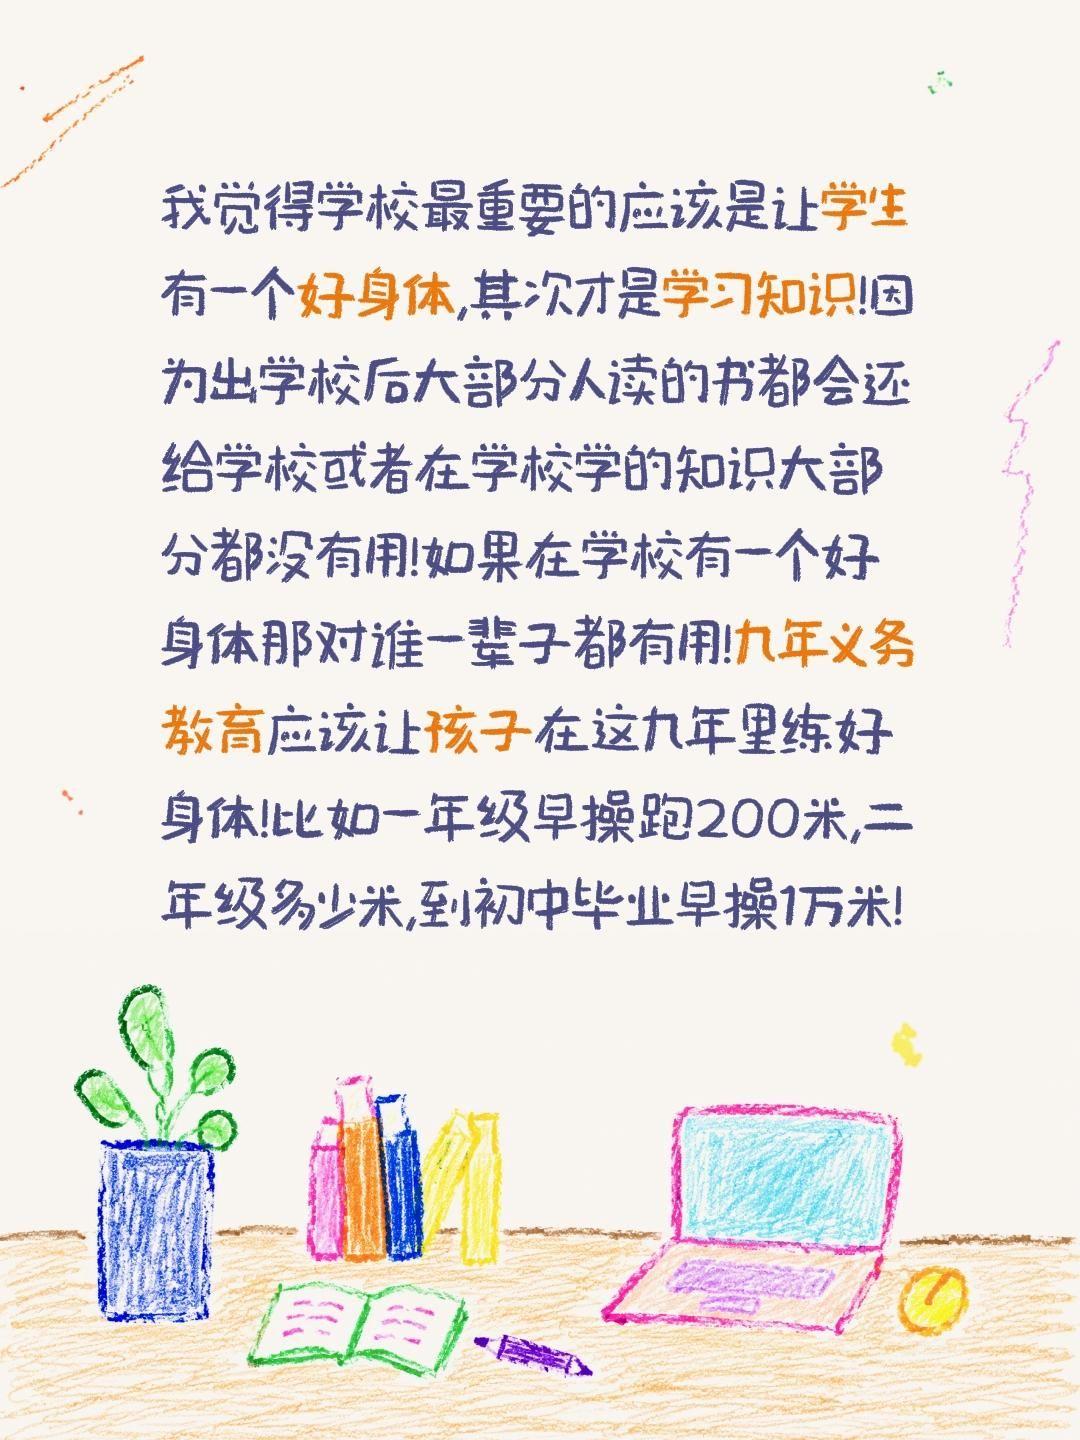 我觉得学校最重要的应该是让学生
有一个好身体,其次才是学习知识!因
为出学校后大部分人读的书都会还
给学校或者在学校学的知识大部
分都没有用!如果在学校有一个好
身体那对谁一辈子都有用!九年义务
教育应该让孩子在这九年里练好
身体!比如一年级早操跑200米,二
年级多少米,到初中毕业早操1万米!